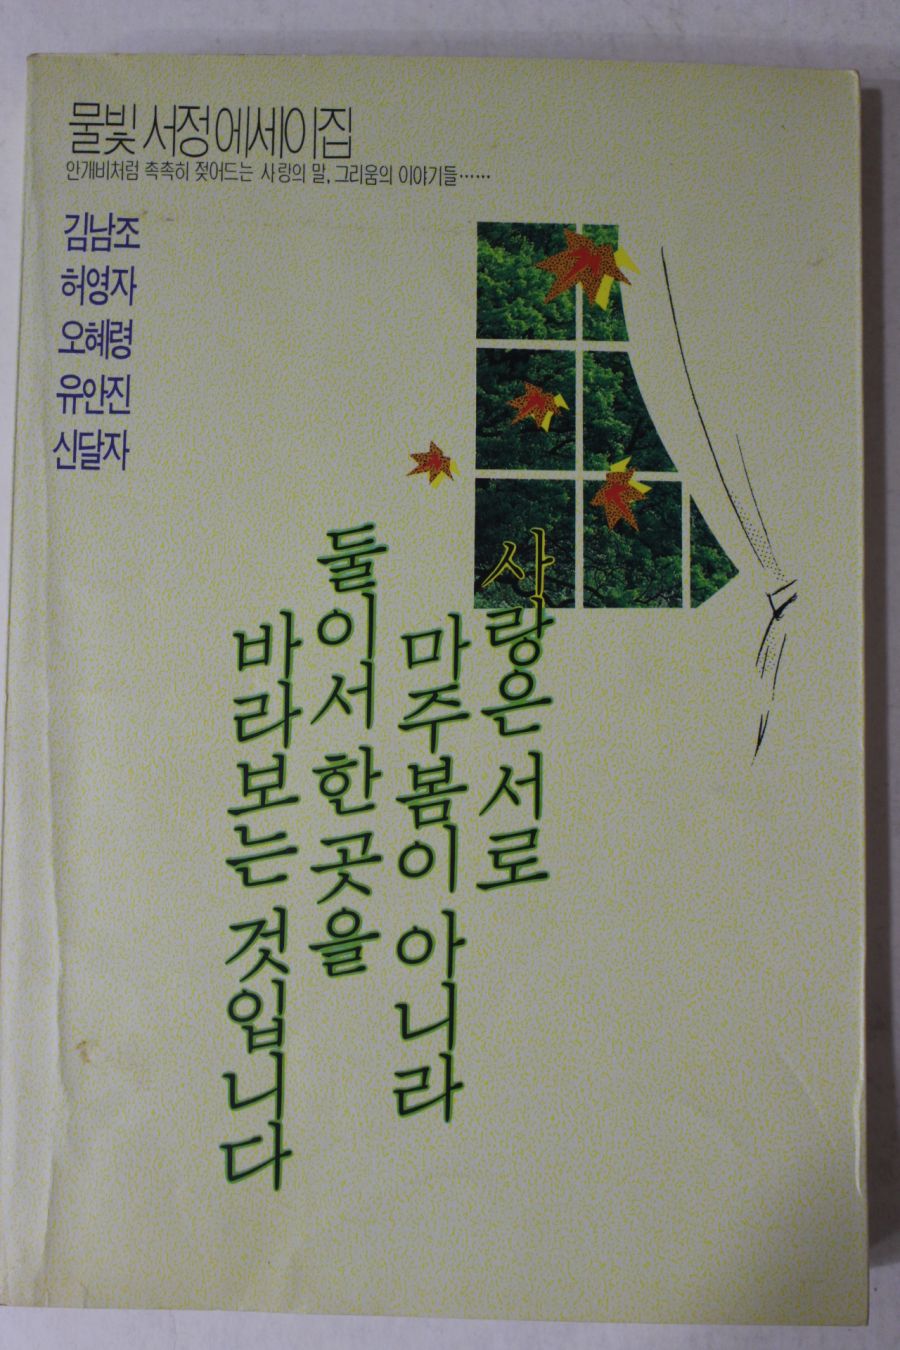 물빛 서정 에세이집
안개비처럼 촉촉히 젖어드는 사랑의 말, 그리움의 이야기들……
김남조
허영자
오혜령
유안진
신달자
사랑은 서로
마주봄이 아니라
둘이서 한 곳을
바라보는 것입니다